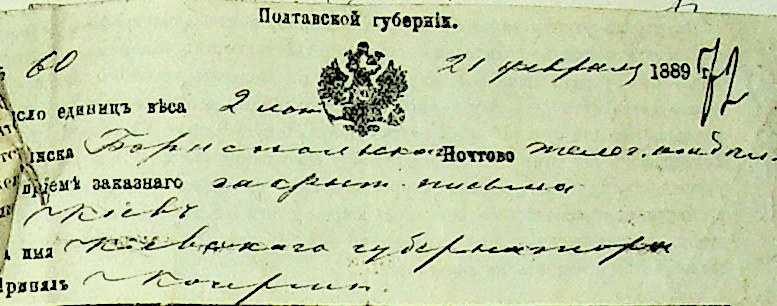 Полтавской губерніи.
60 21 февраля 1889 г. 72
исло единицъ вѣса 2 лот
иска Бориспольска Почтово телег. отдѣл.
пріемѣ заказнаго закрыт. письма
Кіевъ
имя Кіевскаго губернатора
Принялъ